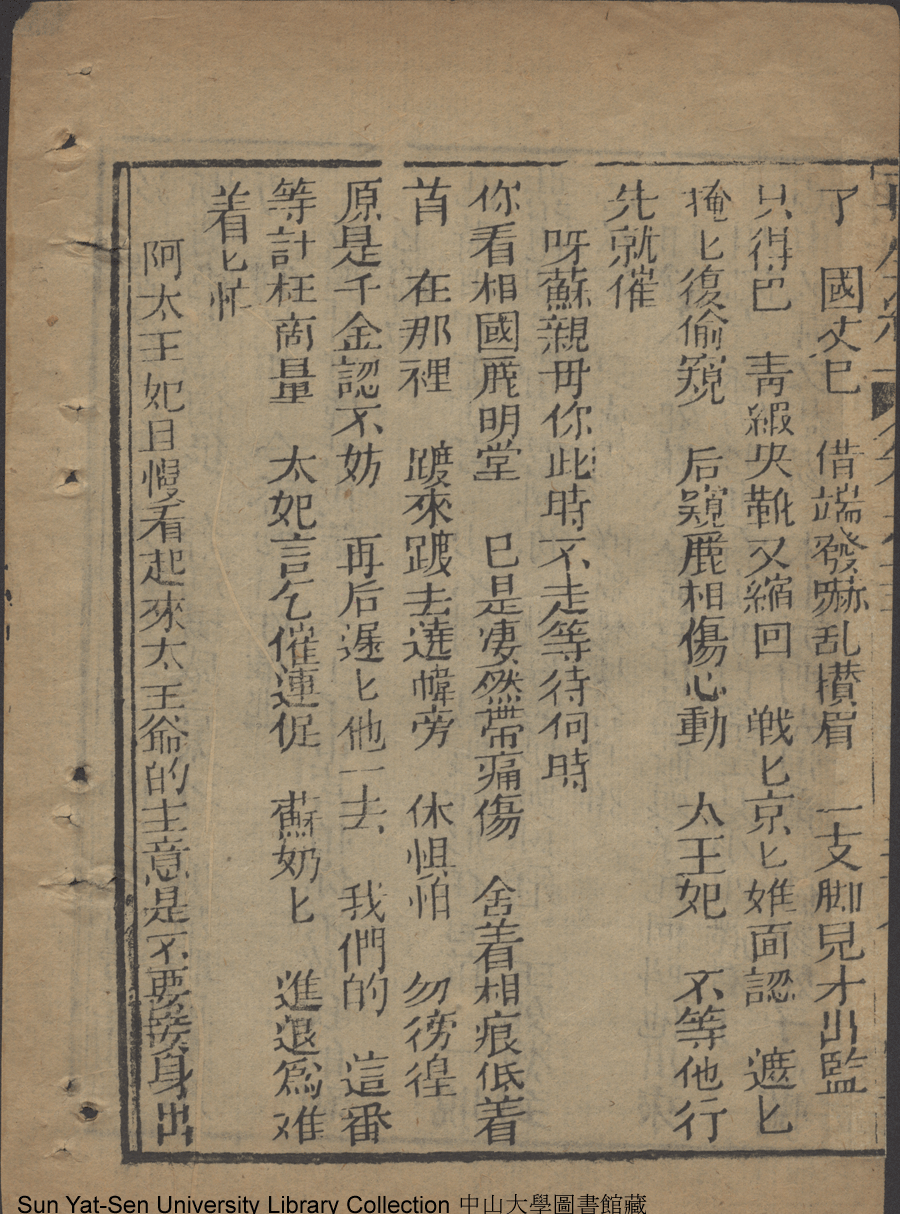 了　國丈巳　借端發嚇乱攅眉　一支脚見才出監
只得巴　青緞央靴又縮回　戦匕京匕姙面認　遮匕
掩匕復偷窺　后窺鹿相傷心動　太王妃　不等他行
先就催
呀蘇親母你此時不走等待何時
你看相國鹿明堂　巳是凄然帶痛傷　舍着相痕低着
首　在那裡　踱來踱去遶幃旁　休惧怕　勿徬徨
原是千金認不妨　再后遲匕他一去　我們的　這番
等計枉啇量　太妃言乞催連促　蘇奶匕　進退為难
着匕忙
阿太王妃且慢看起來太王爺的主意是不要挨身出
Sun Yat-Sen University Library Collection 中山大學圖書館藏